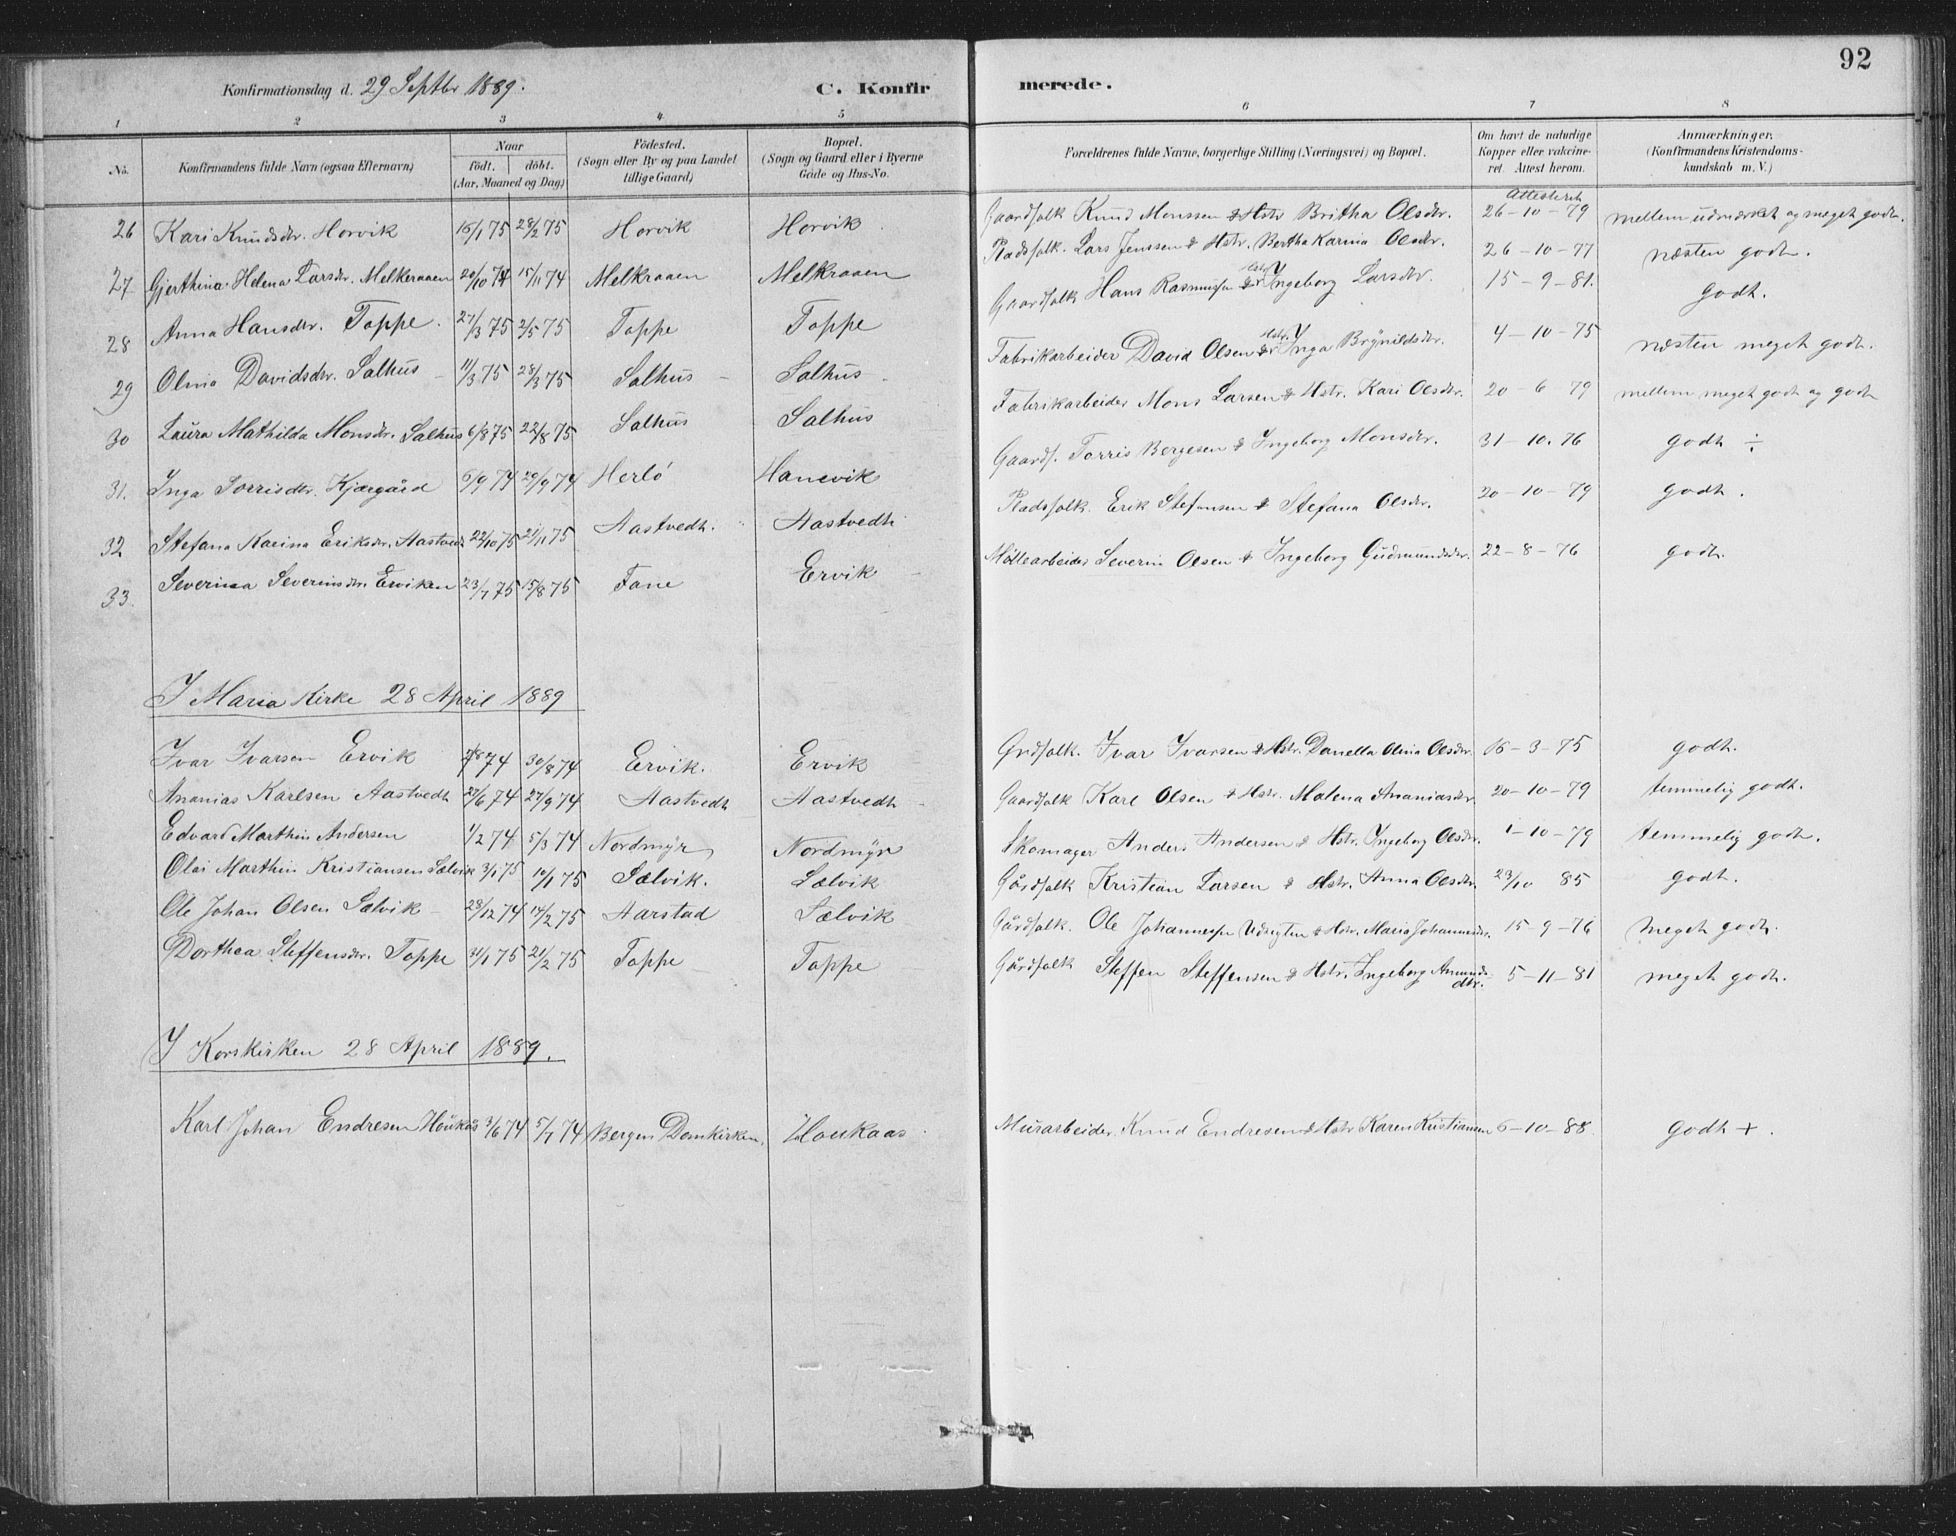 92
Konfirmationsdag d. 29 Septbr 1889. C. Konfirmerede.
1 2 3 4 5 6 7 8
No. Konfirmandens fulde Navn (ogsaa Efternavn) Naar födt. döbt. (Aar, Maaned og Dag) Födested. (Sogn eller By og paa Landet tillige Gaard) Bopæl. (Sogn og Gaard eller i Byerne Gade og Hus-No. Forældrenes fulde Navne, borgerlige Stilling (Næringsvei) og Bopæl. Om havt de naturlige Kopper eller vakcineret. Attest herom. Anmærkninger. (Konfirmandens Kristendomskundskab m. V.)
Attesteret
26 Kari Knudsdtr. Horvik 15/1 75 28/2 75 Horvik Horvik Gaardfolk Knud Monssen & Hstr Britha Olsdtr. 26-10-79 mellem udmærket og meget godt.
27 Gjerthina Helena Larsdtr. Melkeraaen 20/10 74 15/11 74 Melkraaen Melkraaen Pladsfolk. Lars Jenssen & Hstr. Bertha Karina Olsdtr. 26-10-77 næsten godt.
28 Anna Hansdtr. Toppe. 27/3 75 2/5 75 Toppe Toppe Gaardfolk Hans Rasmussen & Hstr Ingeborg Larsdtr. 15-9-81. godt.
29 Olina Davidsdtr. Salhus 11/3 75 28/3 75 Salhus Salhus Fabrikarbeider David Olsen & Hstr. Inga Brynildsdtr. 4-10-75 næsten meget godt.
30 Laura Mathilda Monsdtr. Salhus 6/8 75 22/8 75 Salhus Salhus Fabrikarbeider Mons Larsen & Hstr. Kari Olsdtr. 20-6 79 mellem meget godt og godt
31. Inga Torrisdtr. Kjærgård 6/9 74 20/9 74 Herlö Hanevik Gaardf. Torris Bergesen & Ingeborg Monsdtr. 31-10.76 godt ÷
32 Stefana Karina Eriksdtr. Aastvedt 22/10 75 21/11 75 Aastvedt. Aastvedt Pladsfolk. Erik Stefansen & Stefana Olsdtr. 20-10-79 godt.
33. Severina Severinsdtr. Erviken 23/7 75 15/8 75 Fane Ervik Möllearbeider Severin Olsen & Ingeborg Gudmundsdtr. 22-8-76 godt.
I Maria Kirke 28 April 1889
Ivar Ivarsen Ervik 74 30/8 74 Ervik. Ervik Grdfolk. Ivar Ivarsen & Hstr. Danella Olina Olsdtr. 16-3-75 godt.
Ananias Karlsen Aastvedt 27/6 74 27/9 74 Aastvedt Aastvedt Gaardfolk Karl Olsen & Hstr. Malena Ananiasdtr. 20-10-79 temmelig godt.
Edvard Marthin Andersen 1/2 74 5/3 74 Nordmyr Nordmyr Skomager Anders Andersen & Hstr. Ingeborg Olsdtr. 1-10-79 temmelig godt.
Olai Marthin Kristiansen Sælvik 3/1 75 10/1 75 Sælvik. Sælvik Gårdfolk Kristian Larsen & Hstr. Anna Olsdtr. 23/10 85 godt.
Ole Johan Olsen Sælvik 28/12 74 14/2 75 Aarstad Sælvik Gårdfolk. Ole Johannessen & Hstr. Maria Johannesdtr. 15-9-76 meget godt.
Dorthea Steffensdtr. Toppe 31/1 75 21/2 75 Toppe Toppe Gårdfolk Steffen Steffensen & Hstr. Ingeborg Amundsdtr. 5-11-81 meget godt.
I Korskirken 28 April 1889.
Karl Johan Endresen Houkås 3/6 74 5/7 74 Bergen Domkirken. Houkaas Murarbeider Knud Endresen & Hstr Karen Kristiansen 6-10-88. godt +.